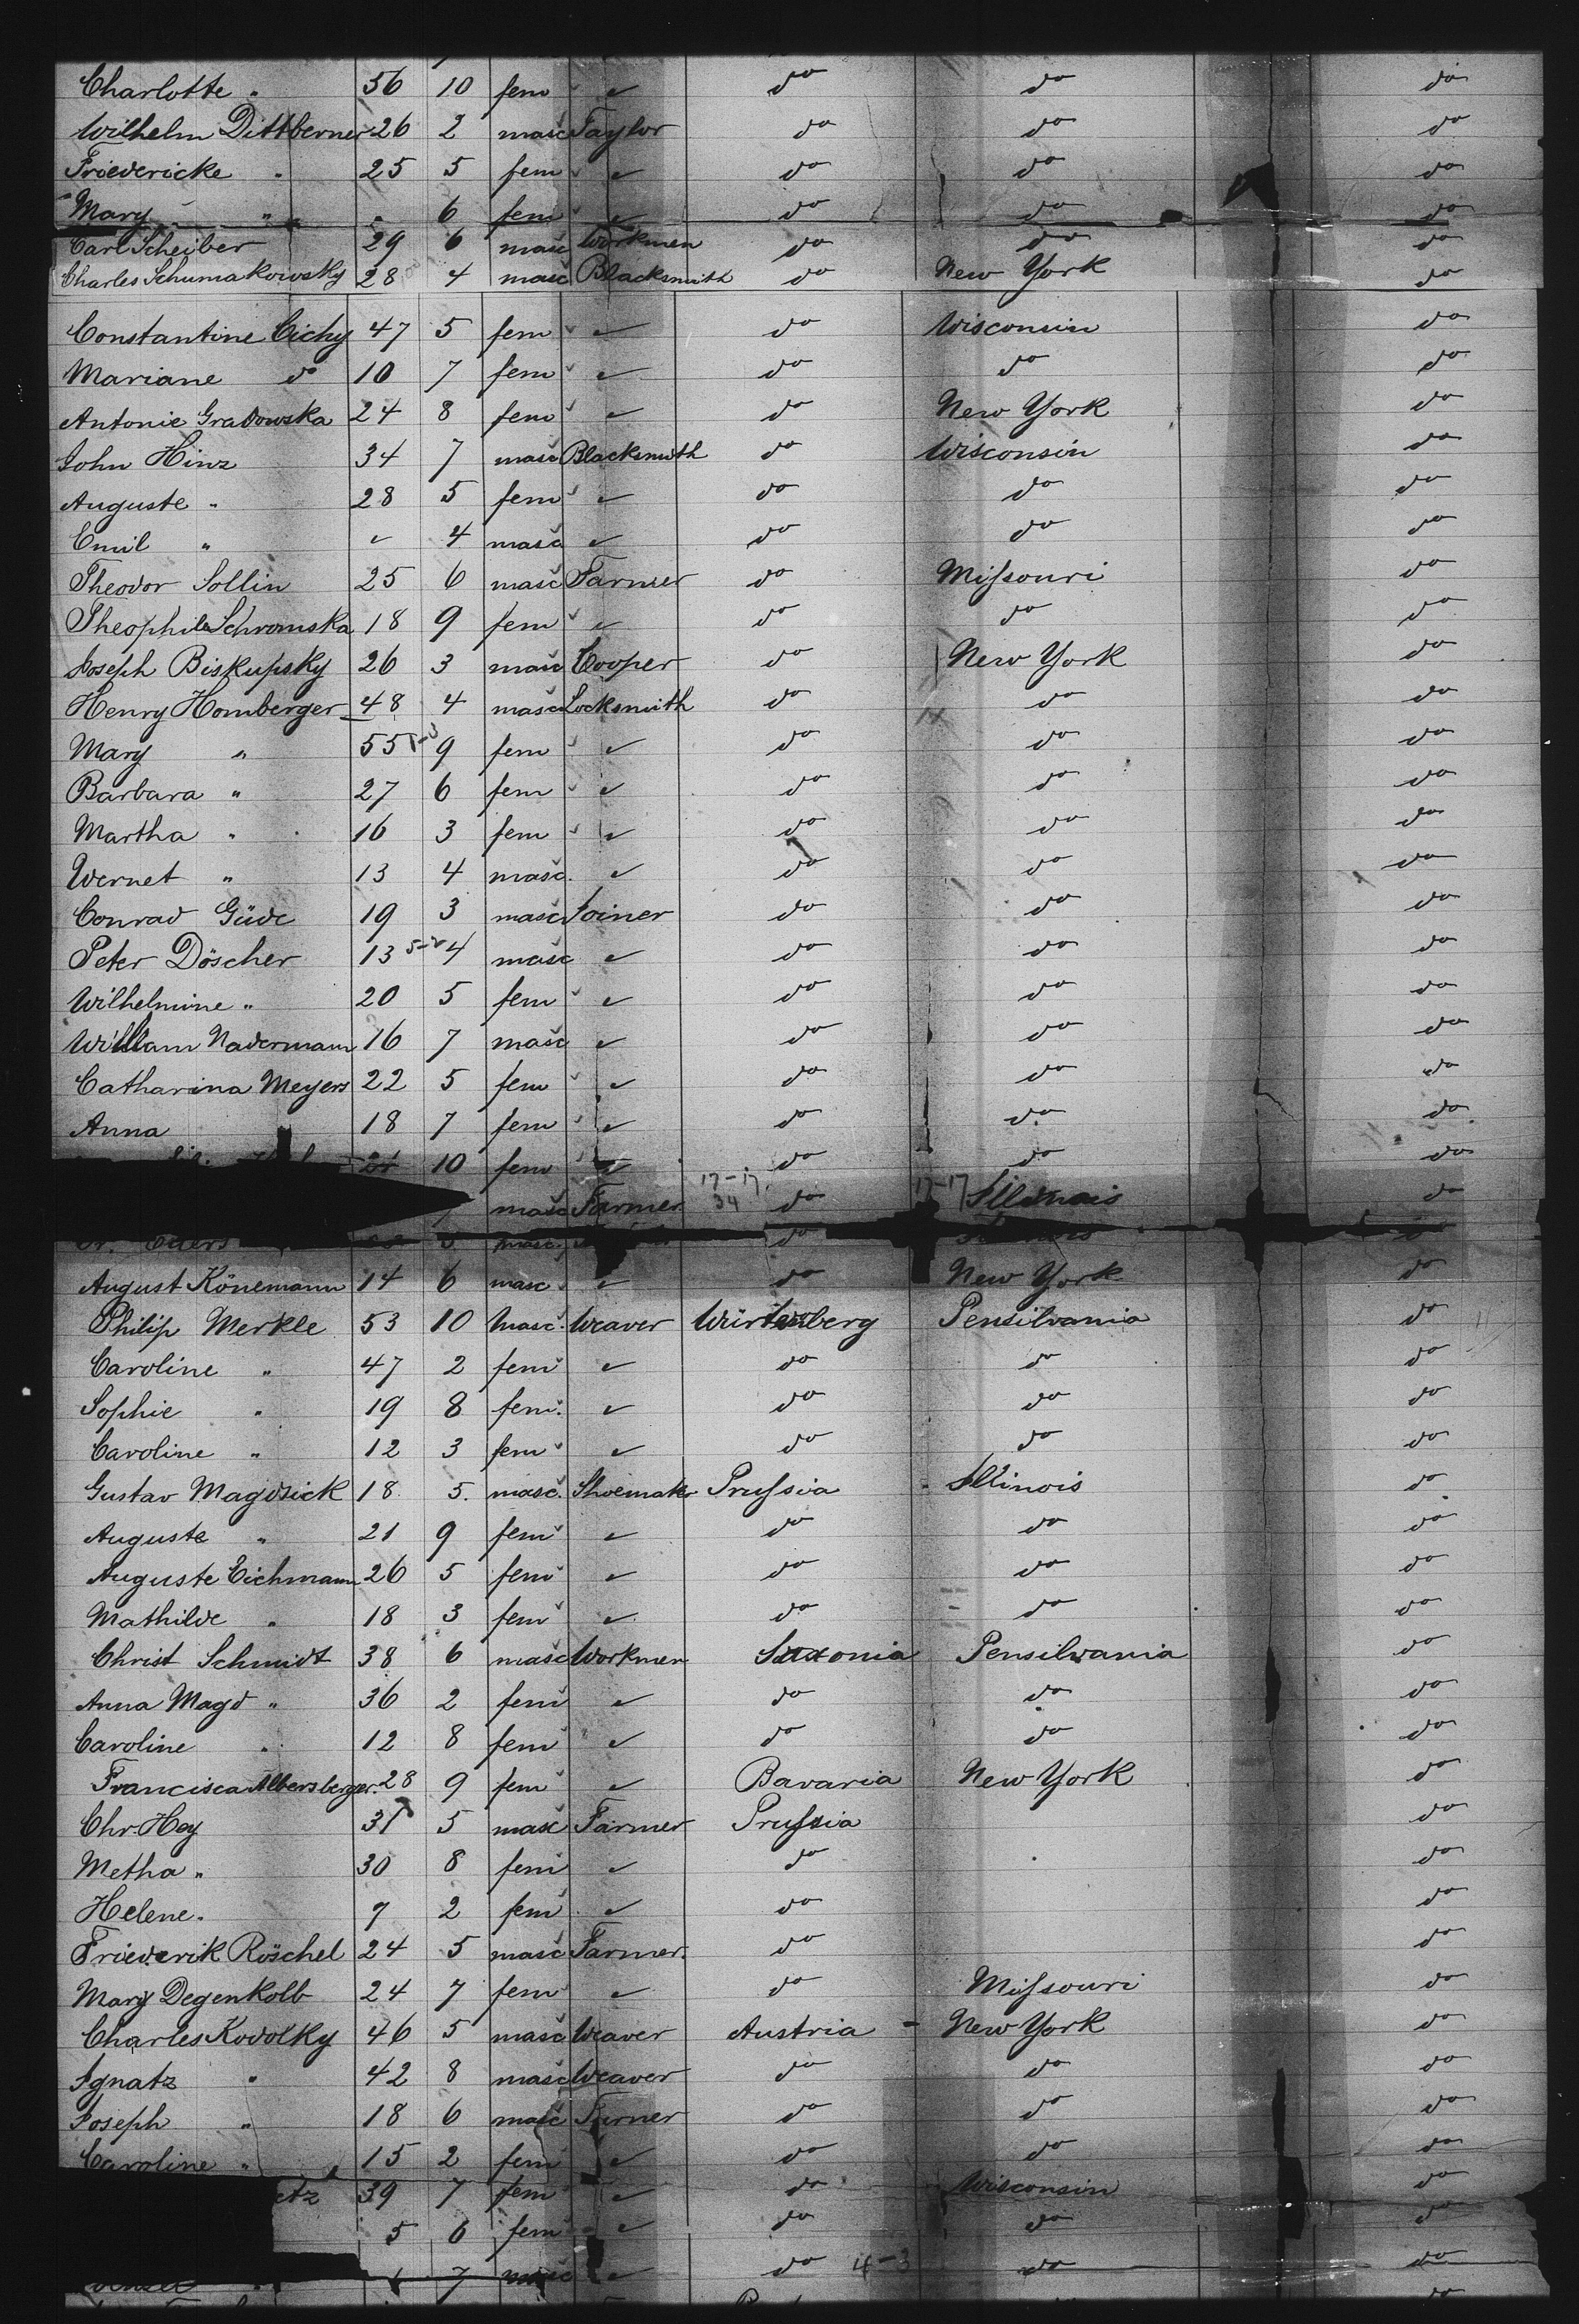 Charlotte " 56 10 fem ✓ do do do
Wilhelm Dittberner 26 2 masc Taylor do do do
Friedericke " 25 5 fem ✓ do do do
Mary " " 6 fem ✓ do do do
Carl Scheiber 29 6 masc Workmen do do do
Charles Schumakowsky 28 4 masc Blacksmith do New York do
Constantine Cichy 47 5 fem ✓ do Wisconsin do
Mariane do 10 7 fem ✓ do do do
Antonie Gradowska 24 8 fem ✓ do New York do
John Hinz 34 7 masc Blacksmith do Wisconsin do
Auguste " 28 5 fem ✓ do do do
Emil " ✓ 4 masc ✓ do do do
Theodor Sollin 25 6 masc Farmer do Missouri do
Theophile Schromska 18 9 fem ✓ do do do
Joseph Biskupsky 26 3 masc Cooper do New York do
Henry Homberger 48 4 masc Locksmith do do do
Mary " 55 9 fem ✓ do do do
Barbara " 27 6 fem ✓ do do do
Martha " 16 3 fem ✓ do do do
Wernet " 13 4 masc. ✓ do do do
Conrad Güde 19 3 masc Joiner do do do
Peter Döscher 13 5-2 4 masc ✓ do do do
Wilhelmine " 20 5 fem ✓ do do do
William Nadermann 16 7 masc ✓ do do do
Catharina Meyers 22 5 fem ✓ do do do
Anna 18 7 fem ✓ do do do
21 10 fem ✓ do do do
7 masc Farmer 17-17 34 do 17-17 Illinois do
Fr. Ehlers masc. do do
August Könemann 14 6 masc ✓ do New York do
Philip Merkle 53 10 masc. Weaver Würtemberg Pensilvania do
Caroline " 47 2 fem ✓ do do do
Sophie " 19 8 fem. ✓ do do do
Caroline " 12 3 fem ✓ do do do
Gustav Magdsick 18 5. masc. Shoemaker Prussia Illinois do
Auguste " 21 9 fem ✓ do do do
Auguste Eichmann 26 5 fem ✓ do do do
Mathilde " 18 3 fem ✓ do do do
Christ Schmidt 38 6 masc Workmen Saxonia Pensilvania do
Anna Magd " 36 2 fem ✓ do do do
Caroline " 12 8 fem ✓ do do do
Francisca Albersberger. 28 9 fem ✓ Bavaria New York do
Chr Hey 31 5 masc Farmer Prussia do
Metha " 30 8 fem ✓ do do
Helene. 7 2 fem ✓ do do
Friederik Röschel 24 5 masc Farmer. do do
Mary Degenkolb 24 7 fem ✓ do Missouri do
Charles Kodolky 46 5 masc Weaver Austria - New York do
Ignatz " 42 8 masc Weaver do do do
Joseph " 18 6 masc Turner do do do
Caroline " 15 2 fem ✓ do do do
etz 39 7 fem ✓ do Wisconsin do
5 6 fem ✓ do do do
7 masc ✓ do 4-3 do do